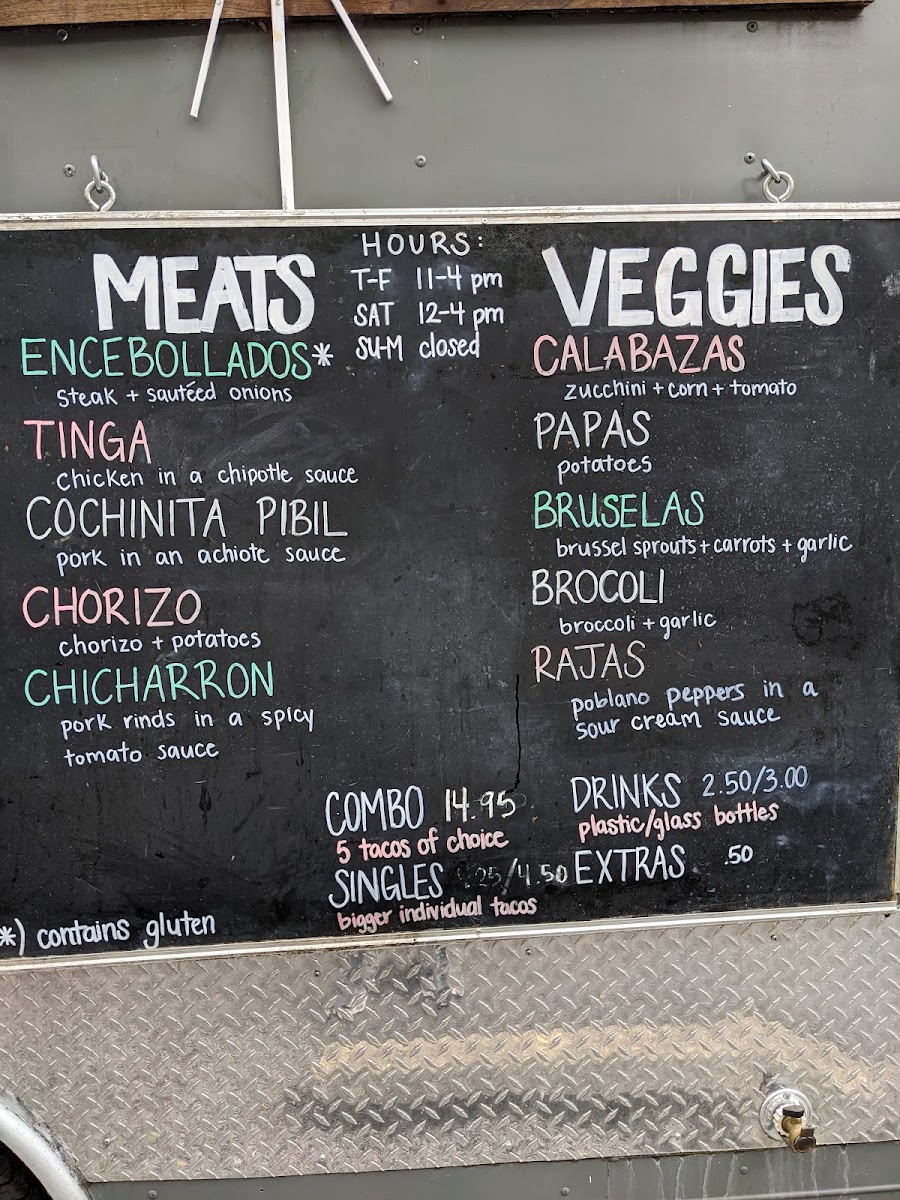 MEATS
ENCEBOLLADOS*
steak + sautéed onions
TINGA
chicken in a chipotle sauce
COCHINITA PIBIL
pork in an achiote sauce
CHORIZO
chorizo + potatoes
CHICHARRON
pork rinds in a spicy
tomato sauce
HOURS:
T-F 11-4 pm
SAT 12-4 pm
SU-M closed
VEGGIES
CALABAZAS
zucchini + corn + tomato
PAPAS
potatoes
BRUSELAS
brussel sprouts + carrots + garlic
BROCOLI
broccoli + garlic
RAJAS
poblano peppers in a
sour cream sauce
COMBO 14.95
5 tacos of choice
SINGLES /4.50
bigger individual tacos
DRINKS 2.50/3.00
plastic/glass bottles
EXTRAS .50
*) contains gluten